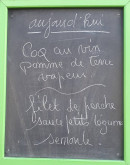 aujourd'hui
Coq au vin
pomme de terre
vapeur
filet de perche
sauce petits légumes
semoule.